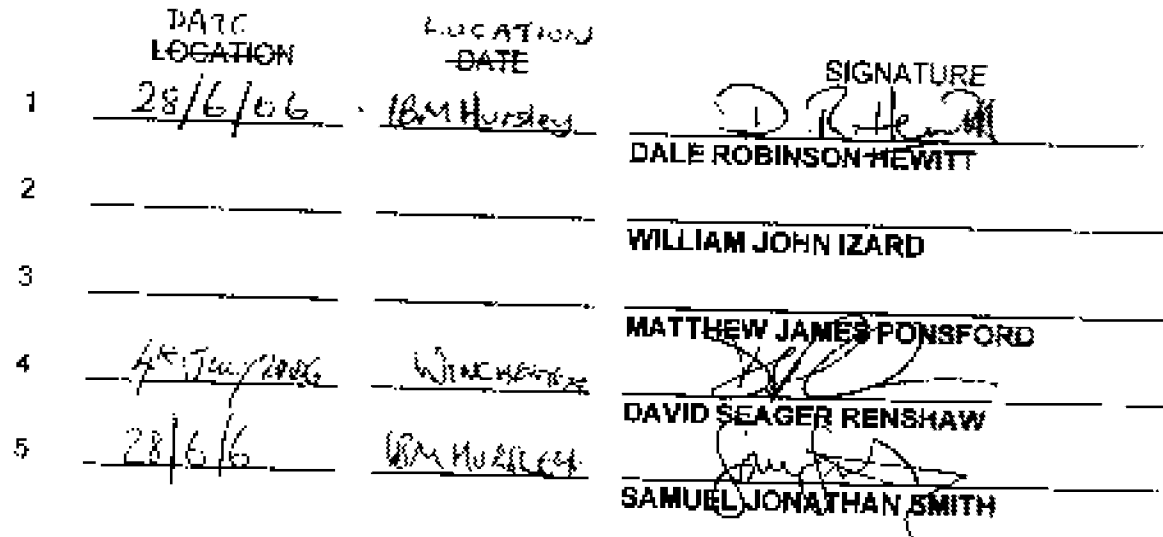 DATE LOCATION
LOCATION DATE SIGNATURE
1 28/6/06 IBM Hursley D R Hewitt
DALE ROBINSON HEWITT
2
WILLIAM JOHN IZARD
3
MATTHEW JAMES PONSFORD
4 4th July 2006 WINCHESTER
DAVID SEAGER RENSHAW
5 28/6/6 IBM HURSLEY
SAMUEL JONATHAN SMITH